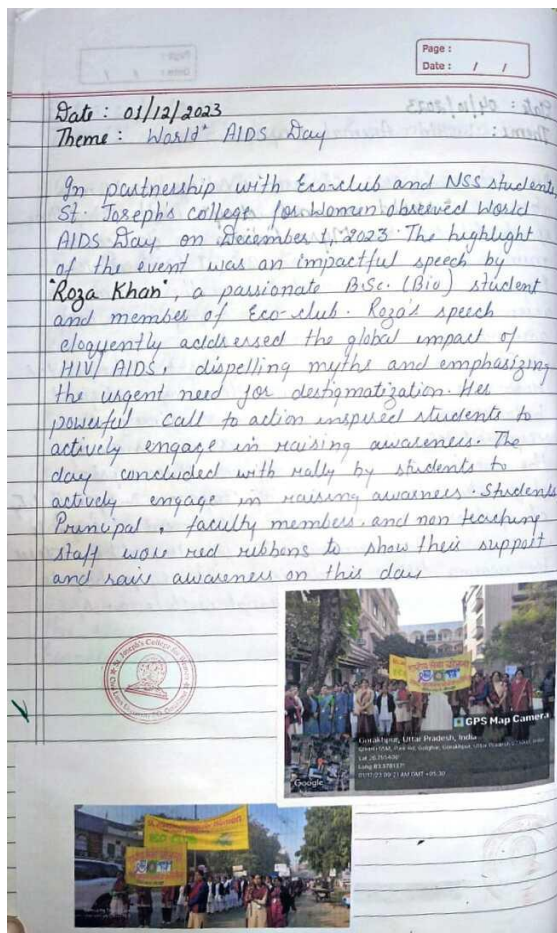 Page :
Date : / /
Date : 01/12/2023
Theme : World AIDS Day
In partnership with Eco-club and NSS students
St. Joseph's college for Women observed World
AIDS Day on December 1, 2023. The highlight
of the event was an impactful speech by
"Roza Khan", a passionate B.Sc. (Bio) student
and member of Eco-club. Roza's speech
eloquently addressed the global impact of
HIV/AIDS, dispelling myths and emphasizing
the urgent need for destigmatization. Her
powerful call to action inspired students to
actively engage in raising awareness. The
day concluded with rally by students to
actively engage in raising awarness. Students
Principal, faculty members, and non teaching
staff wore red ribbons to show their support
and raise awareness on this day
St. Joseph's College for Women
राष्ट्रीय सेवा योजना
GPS Map Camera
Gorakhpur, Uttar Pradesh, India
Google